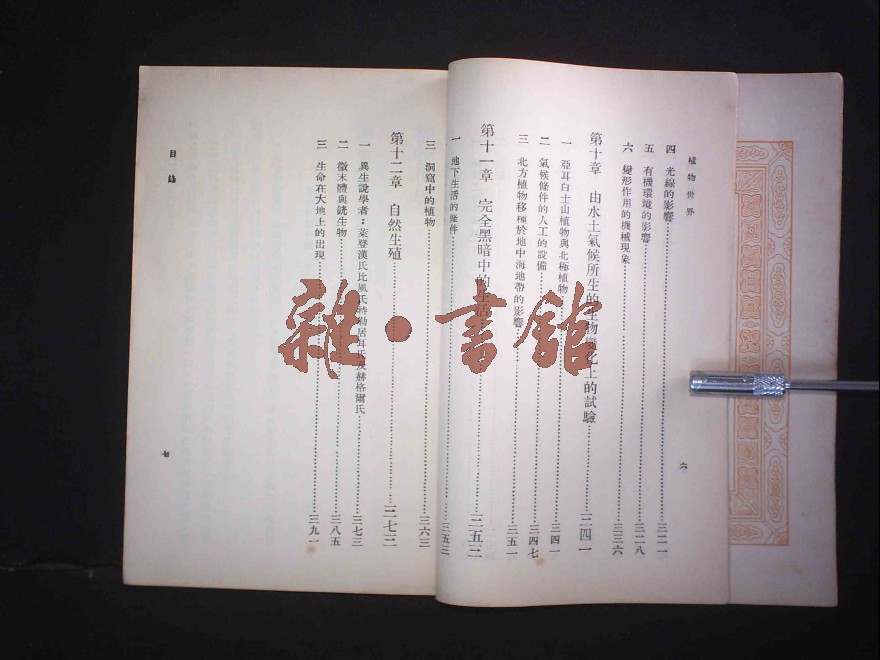 植物世界
四 光線的影響 三二一
五 有機環境的影響 三二八
六 變形作用的機械現象 三三六
第十章 由水土氣候所生的生物變化上的試驗 三四一
一 亞耳白士山植物與北極植物 三四一
二 氣候條件的人工的設備 三四七
三 北方植物移種於地中海地帶的影響 三五一
第十一章 完全黑暗中的生活 三五三
一 地下生活的條件 三五三
六
三 洞窟中的植物 三六三
第十二章 自然生殖 三七三
一 異生說學者：萊登漢氏比風氏特勒居耳氏及赫格爾氏 三七三
二 微末體與銧生物 三八五
三 生命在大地上的出現 三九一
目錄
雜·書館